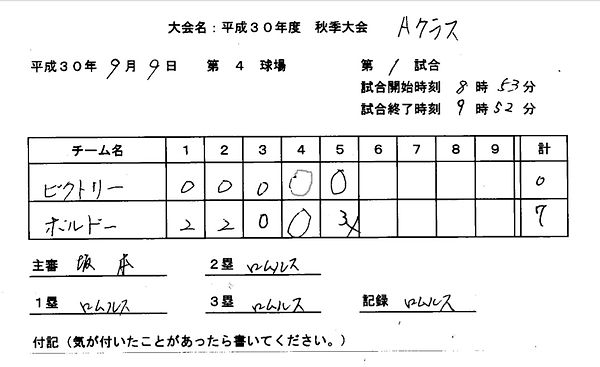 大会名：平成３０年度　秋季大会　Aクラス
平成３０年 9月 9日　第 ４ 球場　第 1 試合
試合開始時刻 8 時 53 分
試合終了時刻 9 時 52 分
チーム名 1 2 3 4 5 6 7 8 9 計
ビクトリー 0 0 0 0 0 0
ボルドー 2 2 0 0 3x 7
主審 坂本　２塁 ロムルス
１塁 ロムルス　３塁 ロムルス　記録 ロムルス
付記（気が付いたことがあったら書いてください。）